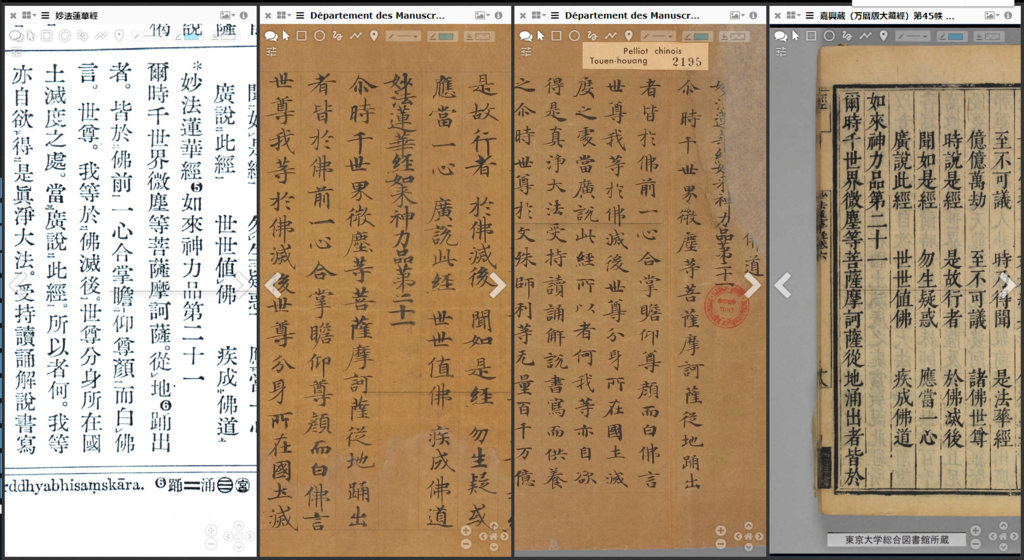 妙法蓮華經
廣說此經 世世値佛 疾成佛道
*妙法蓮華經❺如來神力品第二十一
爾時千世界微塵等菩薩摩訶薩。從地❻踊出
者。皆於佛前一心合掌瞻仰尊顏而白佛
言。世尊。我等於佛滅後。世尊分身所在國
土滅度之處。當廣說此經。所以者何。我等
亦自欲得是眞淨大法。受持讀誦解說書寫
rddhyabhisaṃskāra. ❻踊＝涌
Département des Manuscr...
是故行者 於佛滅後 聞如是經 勿生疑或
應當一心 廣說此經 世世值佛 疾成佛道
妙法蓮華經如来神力品第二十一
尒時千世界微塵等菩薩摩訶薩從地踊出
者皆於佛前一心合掌瞻仰尊顏而白佛言
世尊我等於佛滅後世尊分身所在國土滅
Département des Manuscr...
Pelliot chinois
Touen-houang 2195
佛道
妙法蓮華經如来神力品第二十一
尒時千世界微塵等菩薩摩訶薩從地踊出
者皆於佛前一心合掌瞻仰尊顏而白佛言
世尊我等於佛滅後世尊分身所在國土滅
度之處當廣說此經所以者何我等亦自欲
得是真淨大法受持讀誦解說書寫而供養
之尒時世尊於文殊師利等无量百千万億
嘉興蔵（万暦版大蔵經）第45帙 ...
至不可議 時乃得聞 是法華經
億億萬劫 至不可議 諸佛世尊
時說是經 是故行者 於佛滅後
聞如是經 勿生疑惑 應當一心
廣說此經 世世值佛 疾成佛道
如來神力品第二十一
爾時千世界微塵等菩薩摩訶薩從地涌出者皆於
東京大学総合図書館所蔵